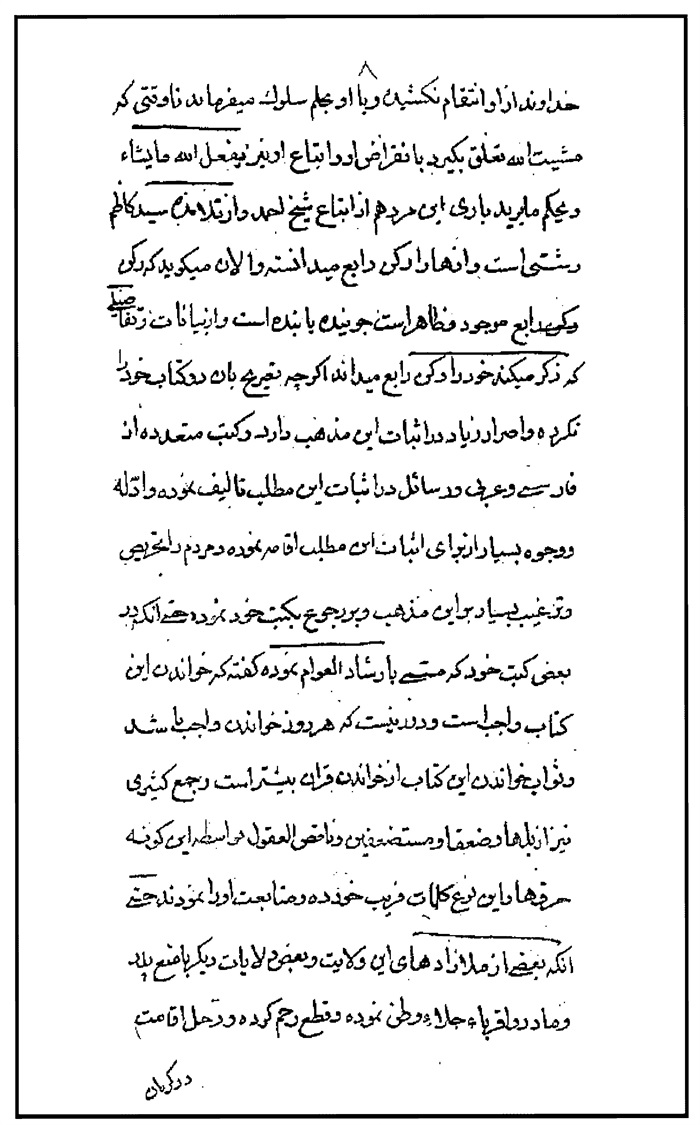 ۸
خداوند از او انتقام نکشیده و با او بحلم سلوک میفرماید تا وقتی که
مشیت الله تعلق بگیرد بانقراض او و اتباع او نیز یفعل الله ما یشاء
و یحکم ما یرید باری این مرد هم از اتباع شیخ احمد و از تلامذه سید کاظم
رشتی است و آنها را رکن رابع میدانسته و الان میکوید که رکن
رابع موجود و ظاهر است جوینده یابنده است و از بیانات و تفاصیلی
که ذکر میکند خود را رکن رابع میداند اکرچه تصریح بان در کتاب خود را
نکرده و اصرار زیاد در اثبات این مذهب دارد و کتب متعدده از
فارسی و عربی و رسائل در اثبات این مطلب تالیف نموده و ادله
و وجوه بسیار از برای اثبات این مطلب اقامه نموده و مردم را تحریص
و ترغیب بسیار بر این مذهب و بر رجوع بکتب خود نموده حتی آنکه در
بعضی کتب خود که مسمی بارشاد العوام نموده کفته که خواندن این
کتاب واجب است و دور نیست که هر روز خواندن واجب باشد
و ثواب خواندن این کتاب از خواندن قران بیشتر است و جمع کثیری
نیز از بلها و ضعفا و مستضعفین و ناقص العقول بواسطه این کونه
حرفها و این نوع کلمات فریب خورده و متابعت او را نمودند حتی
آنکه بعضی از ملا زادهای این ولایت و بعضی ولایات دیکر با منع پدر
و مادر و اقرباء جلاء وطن نموده و قطع رحم کرده و رحل اقامت
در کرمان